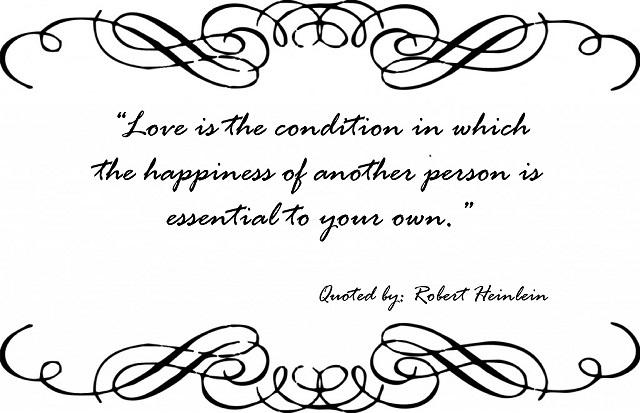 “Love is the condition in which
the happiness of another person is
essential to your own.”
Quoted by: Robert Heinlein